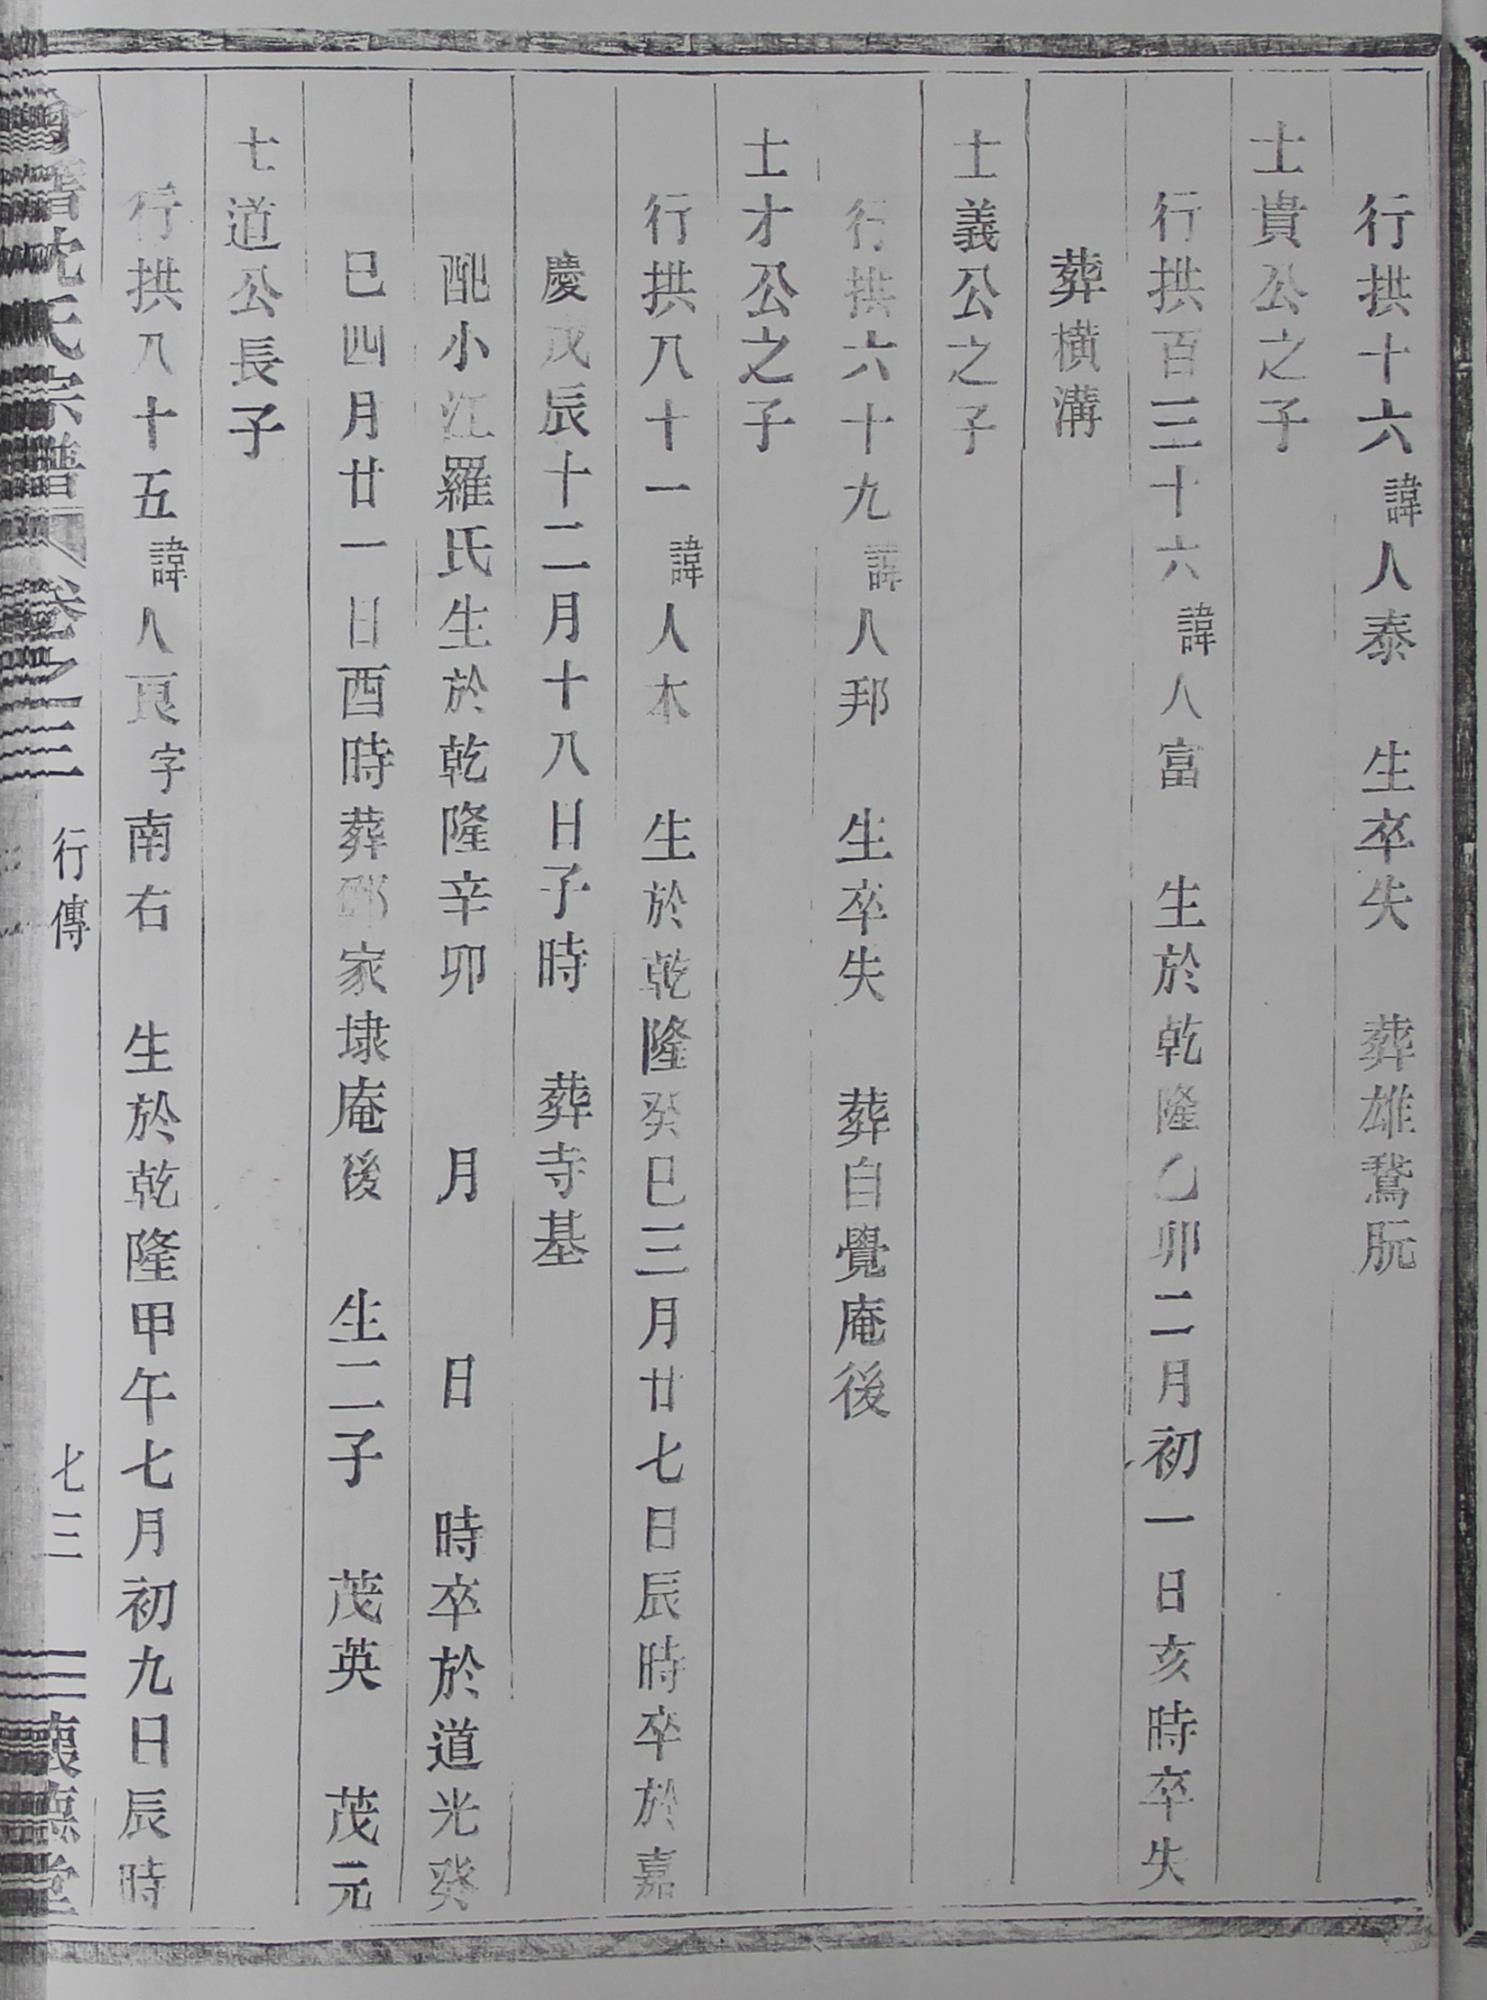 行拱十六諱人泰　生卒失　葬雄鵞阮
士貴公之子
行拱百三十六諱人富　生於乾隆乙卯二月初一日亥時卒失
葬橫溝
士義公之子
行拱六十九諱人邦　生卒失　葬自覺庵後
士才公之子
行拱八十一諱人木　生於乾隆癸巳三月廿七日辰時卒於嘉
慶戊辰十二月十八日子時　葬寺基
配小江羅氏生於乾隆辛卯　月　日　時卒於道光癸
巳四月廿一日酉時葬鄧家埭庵後　生二子　茂英　茂元
士道公長子
行拱八十五諱人良字南右　生於乾隆甲午七月初九日辰時
沈氏宗譜　卷之三　行傳　七三　懷德堂